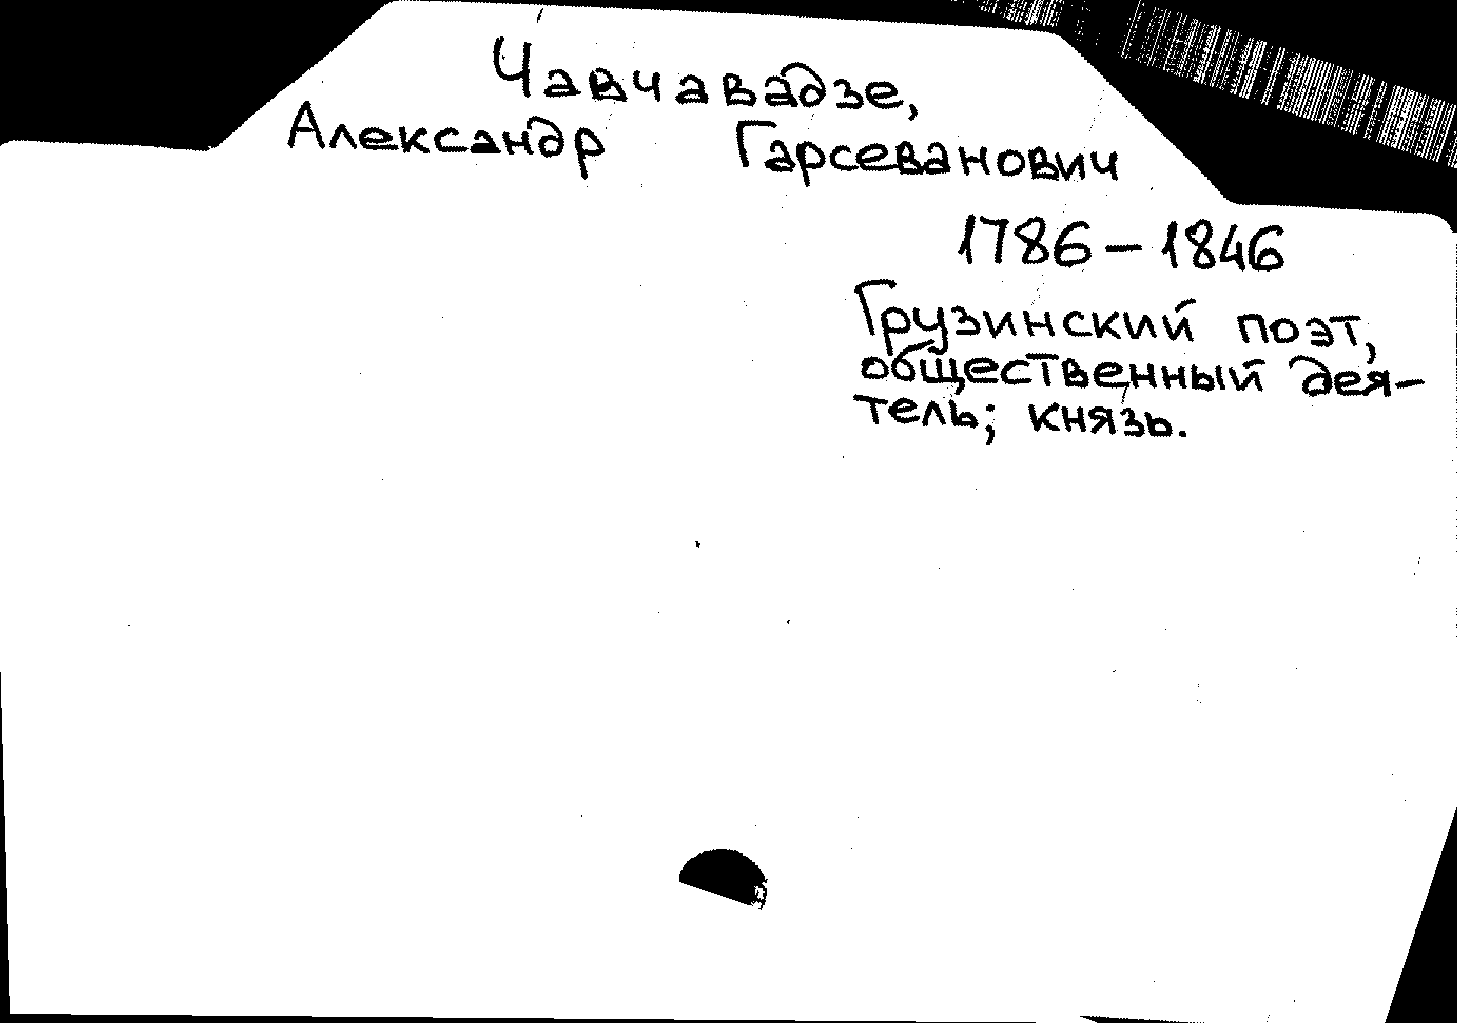 Чавчавадзе,
Александр Гарсеванович
1786–1846
Грузинский поэт,
общественный дея-
тель; князь.